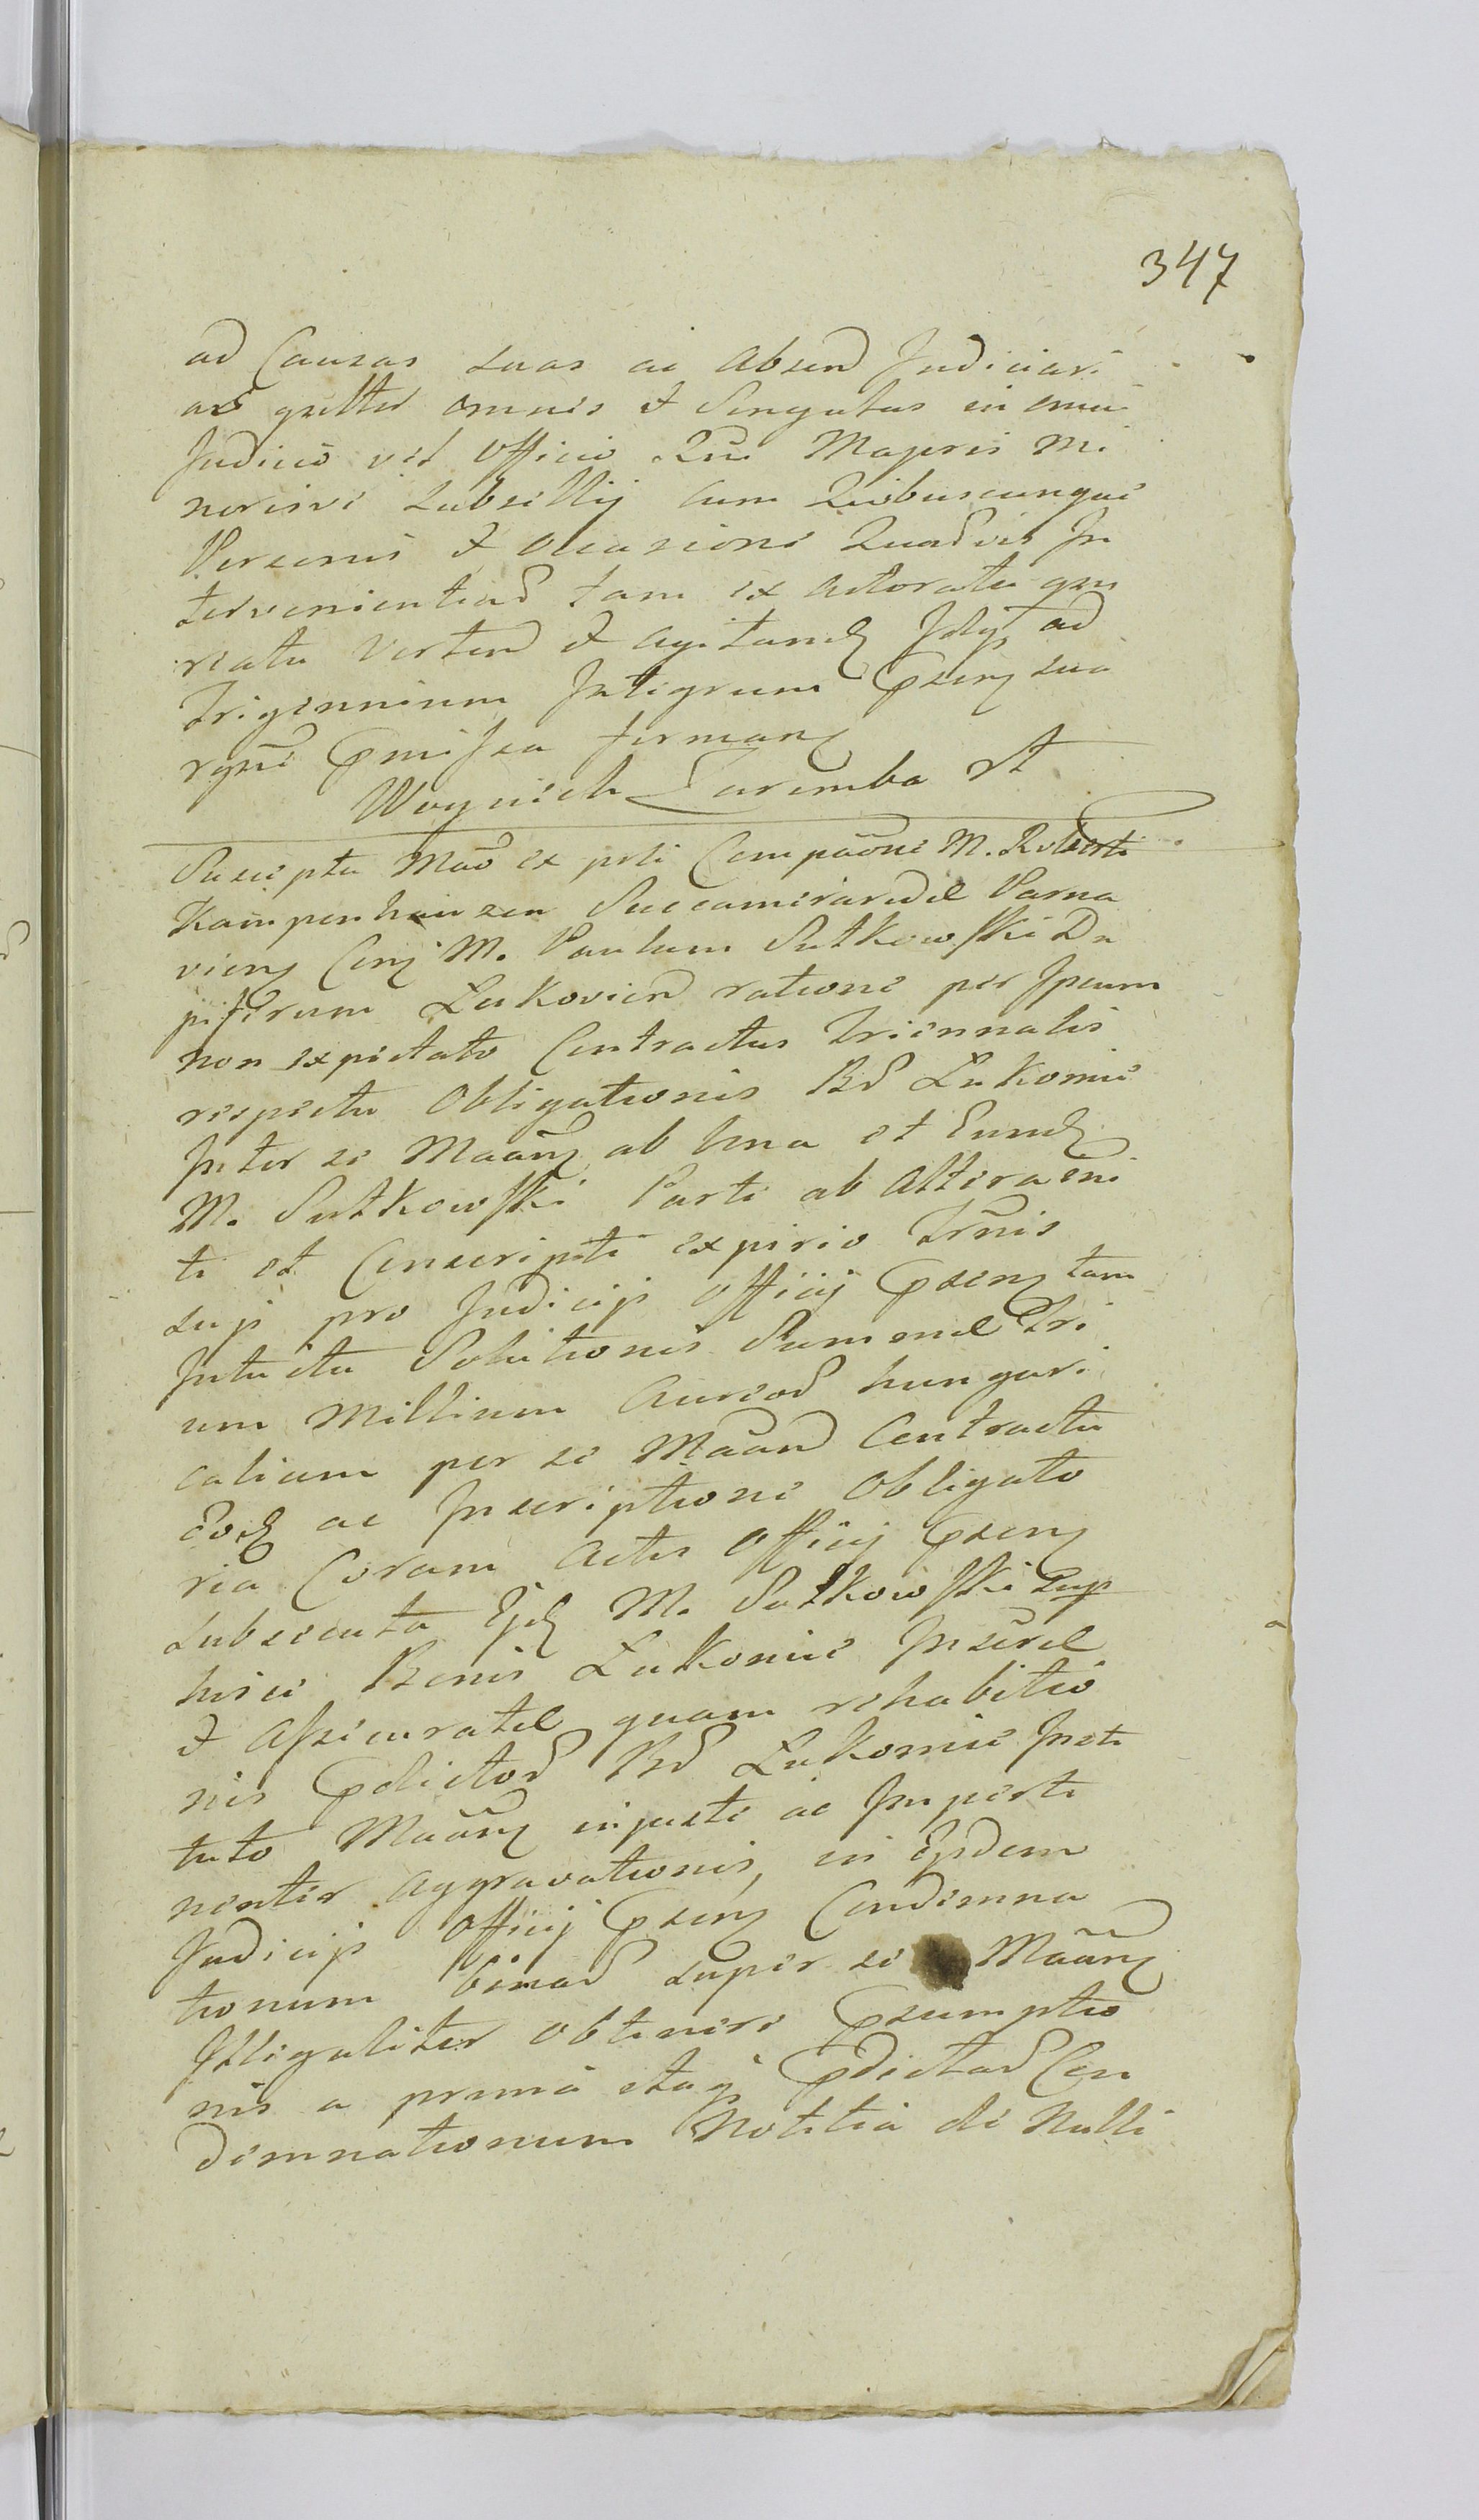 347
ad Causas suas ac absend Judiciari
as gnltter omnes et Singulas in omni
Judicio vel Officio Rni Majoris mi
norisve Subsellij cum Quibuscunque
Personis et occasione Quarvis In
tervenientiar tam ex actoratu quam
reatu verten et agitand ad
Trigennium Integrum Psens sua
rqne Pmissa firmans
Woyciech Zaremba
Suscepta Mao ex psti Compaone M. Roberti
Kampenhauzen Succamerarudae Parna
viens Cons M. Paulum Sutkowski Da
piferum Lukovien ratione per Ipsum
non expectato Contractus Triennalis
respectu Obligationis Br Lukowie
Inter se Maanz ab Una et Eund
M. Sutkowski Parte ab Altera ini
ti et Conscripti expirio Trnis
sup pro Judicijs Officij Psens tam
Intuitu Solutionis Summae Tri
um Millium Aureor hungari
calium per se Maan Contractu
Eod ac Inscriptione Obligato
ria Coram Actis Officij Psens
Subsecuta Ejd M. Sutkowski Sup
hisce Bonis Lukowie Inscrae
et Assecuratae quam rehabitio
nis Pdictor Br Lukowie Insti
tuto Maanz injuste ac Imperti
nenter Aggravationis, in Eisdem
Judicijs Officij Psens Condemna
tionum binar super se Maanz
Illegaliter obtinere Psumptio
nis a prima Pdictar Con
demnationum Notitia de Nulli